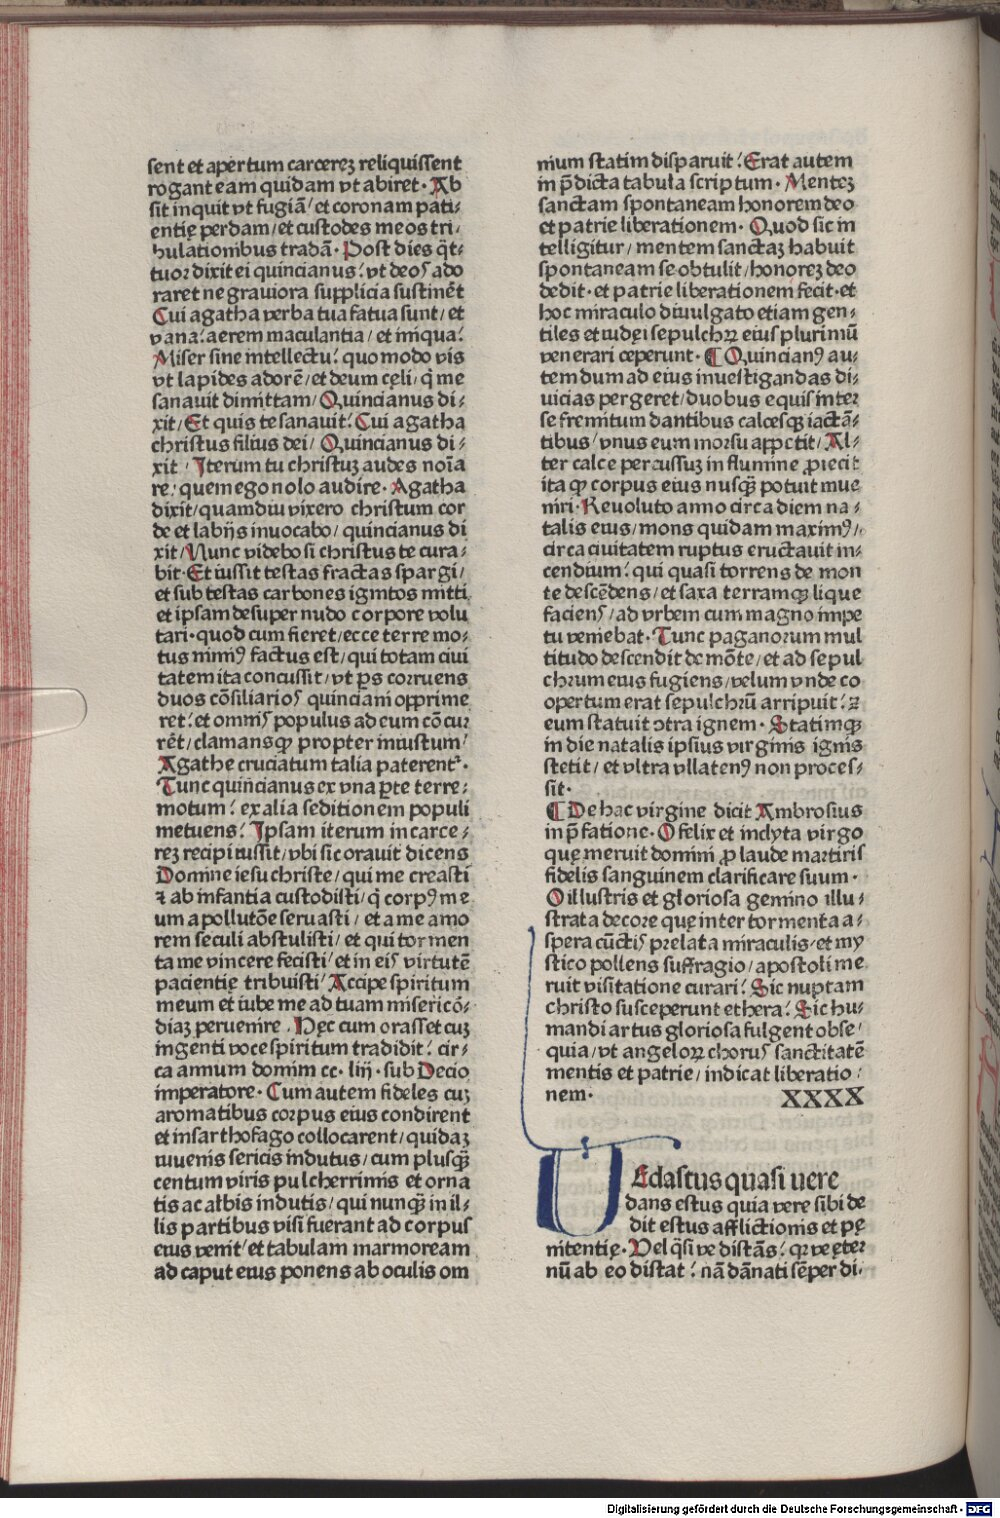 sent et apertum carcerez reliquissent
rogant eam quidam vt abiret· Ab
sit inquit vt fugiā/ et coronam pati⸗
entię perdam/ et custodes meos tri⸗
bulationibus tradā· Post dies q̄t⸗
tuor dixit ei quincianus: vt deos ado
raret ne grauiora supplicia sustinēt
Cui agatha verba tua fatua sunt/ et
vana: aerem maculantia/ et iniqua:
Miser sine intellectu: quomodo vis
vt lapides adorē/ et deum cęli/ q̄ me
sanauit dimittam/ Quincianus di⸗
xit/ Et quis te sanauit: Cui agatha
christus filius dei/ Quincianus di⸗
xit/ Iterum tu christuz audes noīa
re: quem ego nolo audire· Agatha
dixit/ quamdiu vixero christum cor
de et labijs inuocabo/ quincianus di
xit/ Nunc videbo si christus te cura⸗
bit· Et iussit testas fractas spargi/
et sub testas carbones ignitos mitti
et ipsam desuper nudo corpore volu
tari· quod cum fieret/ ecce terre mo⸗
tus nimiꝰ factus est/ qui totam ciui
tatem ita concussit/ vt ꝑs corruens
duos cōsiliarios quinciani opprime
ret: et omnis populus ad eum cōcur
rēt/ clamans ꝙ propter iniustum
Agathe cruciatum talia paterent᷑·
Tunc quincianus ex vna ꝑte terre⸗
motum: ex alia seditionem populi
metuens: Ipsam iterum in carce⸗
rez recipi iussit/ vbi sic orauit dicens
Domine iesu christe/ qui me creasti
⁊ ab infantia custodisti/ q̄ corpꝰ me
um a pollutōe seruasti/ et a me amo
rem seculi abstulisti/ et qui tormen
ta me vincere fecisti/ et in eis virtutē
pacientię tribuisti/ Accipe spiritum
meum et iube me ad tuam misericō⸗
diaz peruenire· Hęc cum orasset cuz
ingenti voce spiritum tradidit: cir⸗
ca annum domini cc· liij· sub Decio
imperatore· Cum autem fideles cuz
aromatibus corpus eius condirent
et in sarthofago collocarent/ quidaz
iuuenis sericis indutus/ cum plusꝗ̄
centum viris pulcherrimis et orna
tis ac albis indutis/ qui nunꝗ̄ in il⸗
lis partibus visi fuerant ad corpus
eius venit/ et tabulam marmoream
ad caput eius ponens ab oculis om
nium statim disparuit: Erat autem
in p̄dicta tabula scriptum· Mentez
sanctam spontaneam honorem deo
et patrie liberationem· Quod sic in
telligitur/ mentem sanctaz habuit
spontaneam se obtulit/ honorez deo
dedit· et patrie liberationem fecit· et
hoc miraculo diuulgato etiam gen⸗
tiles et iudęi sepulchrꝝ eius plurimū
venerari ceperunt· ¶ Quincianꝰ au⸗
tem dum ad eius inuestigandas di⸗
uicias pergeret/ duobus equis inter
se fremitum dantibus calcesqꝫ iactā⸗
tibus/ vnus eum morsu appetit/ Al⸗
ter calce percussuz in flumine ꝓiecit
ita ꝙ corpus eius nusꝗ̄ potuit inue
niri· Reuoluto anno circa diem na⸗
talis eius/ mons quidam maximꝰ/
circa ciuitatem ruptus eructauit in⸗
cendium: qui quasi torrens de mon
te descēdens/ et saxa terramqꝫ lique
faciens/ ad vrbem cum magno impe
tu veniebat· Tunc paganorum mul
titudo descendit de mōte/ et ad sepul
chrum eius fugiens/ velum vnde co
opertum erat sepulchrū arripuit: ⁊
eum statuit ↄtra ignem· Statimqꝫ
in die natalis ipsius virginis ignis
stetit/ et vltra vllatenꝰ non proces⸗
sit·
¶ De hac virgine dicit Ambrosius
in p̄fatione· O felix et inclyta virgo
quę meruit domini ꝓ laude martiris
fidelis sanguinem clarificare suum·
O illustris et gloriosa gemino illu⸗
strata decore quę inter tormenta a⸗
spera cūctis prelata miraculis/ et my
stico pollens suffragio/ apostoli me
ruit visitatione curari: Sic nuptam
christo susceperunt ethera: Sic hu⸗
mandi artus gloriosa fulgent obse⸗
quia/ vt angelorꝝ chorus sanctitatē
mentis et patrie/ indicat liberatio⸗
nem· XXXX
UEdastus quasi uere
dans estus quia vere sibi de
dit estus afflictionis et pę
nitentię· Vel q̄si ve distās: qꝛ ve ęter
nū ab eo distat: nā dānati sēper di⸗
Digitalisierung gefördert durch die Deutsche Forschungsgemeinschaft · DFG